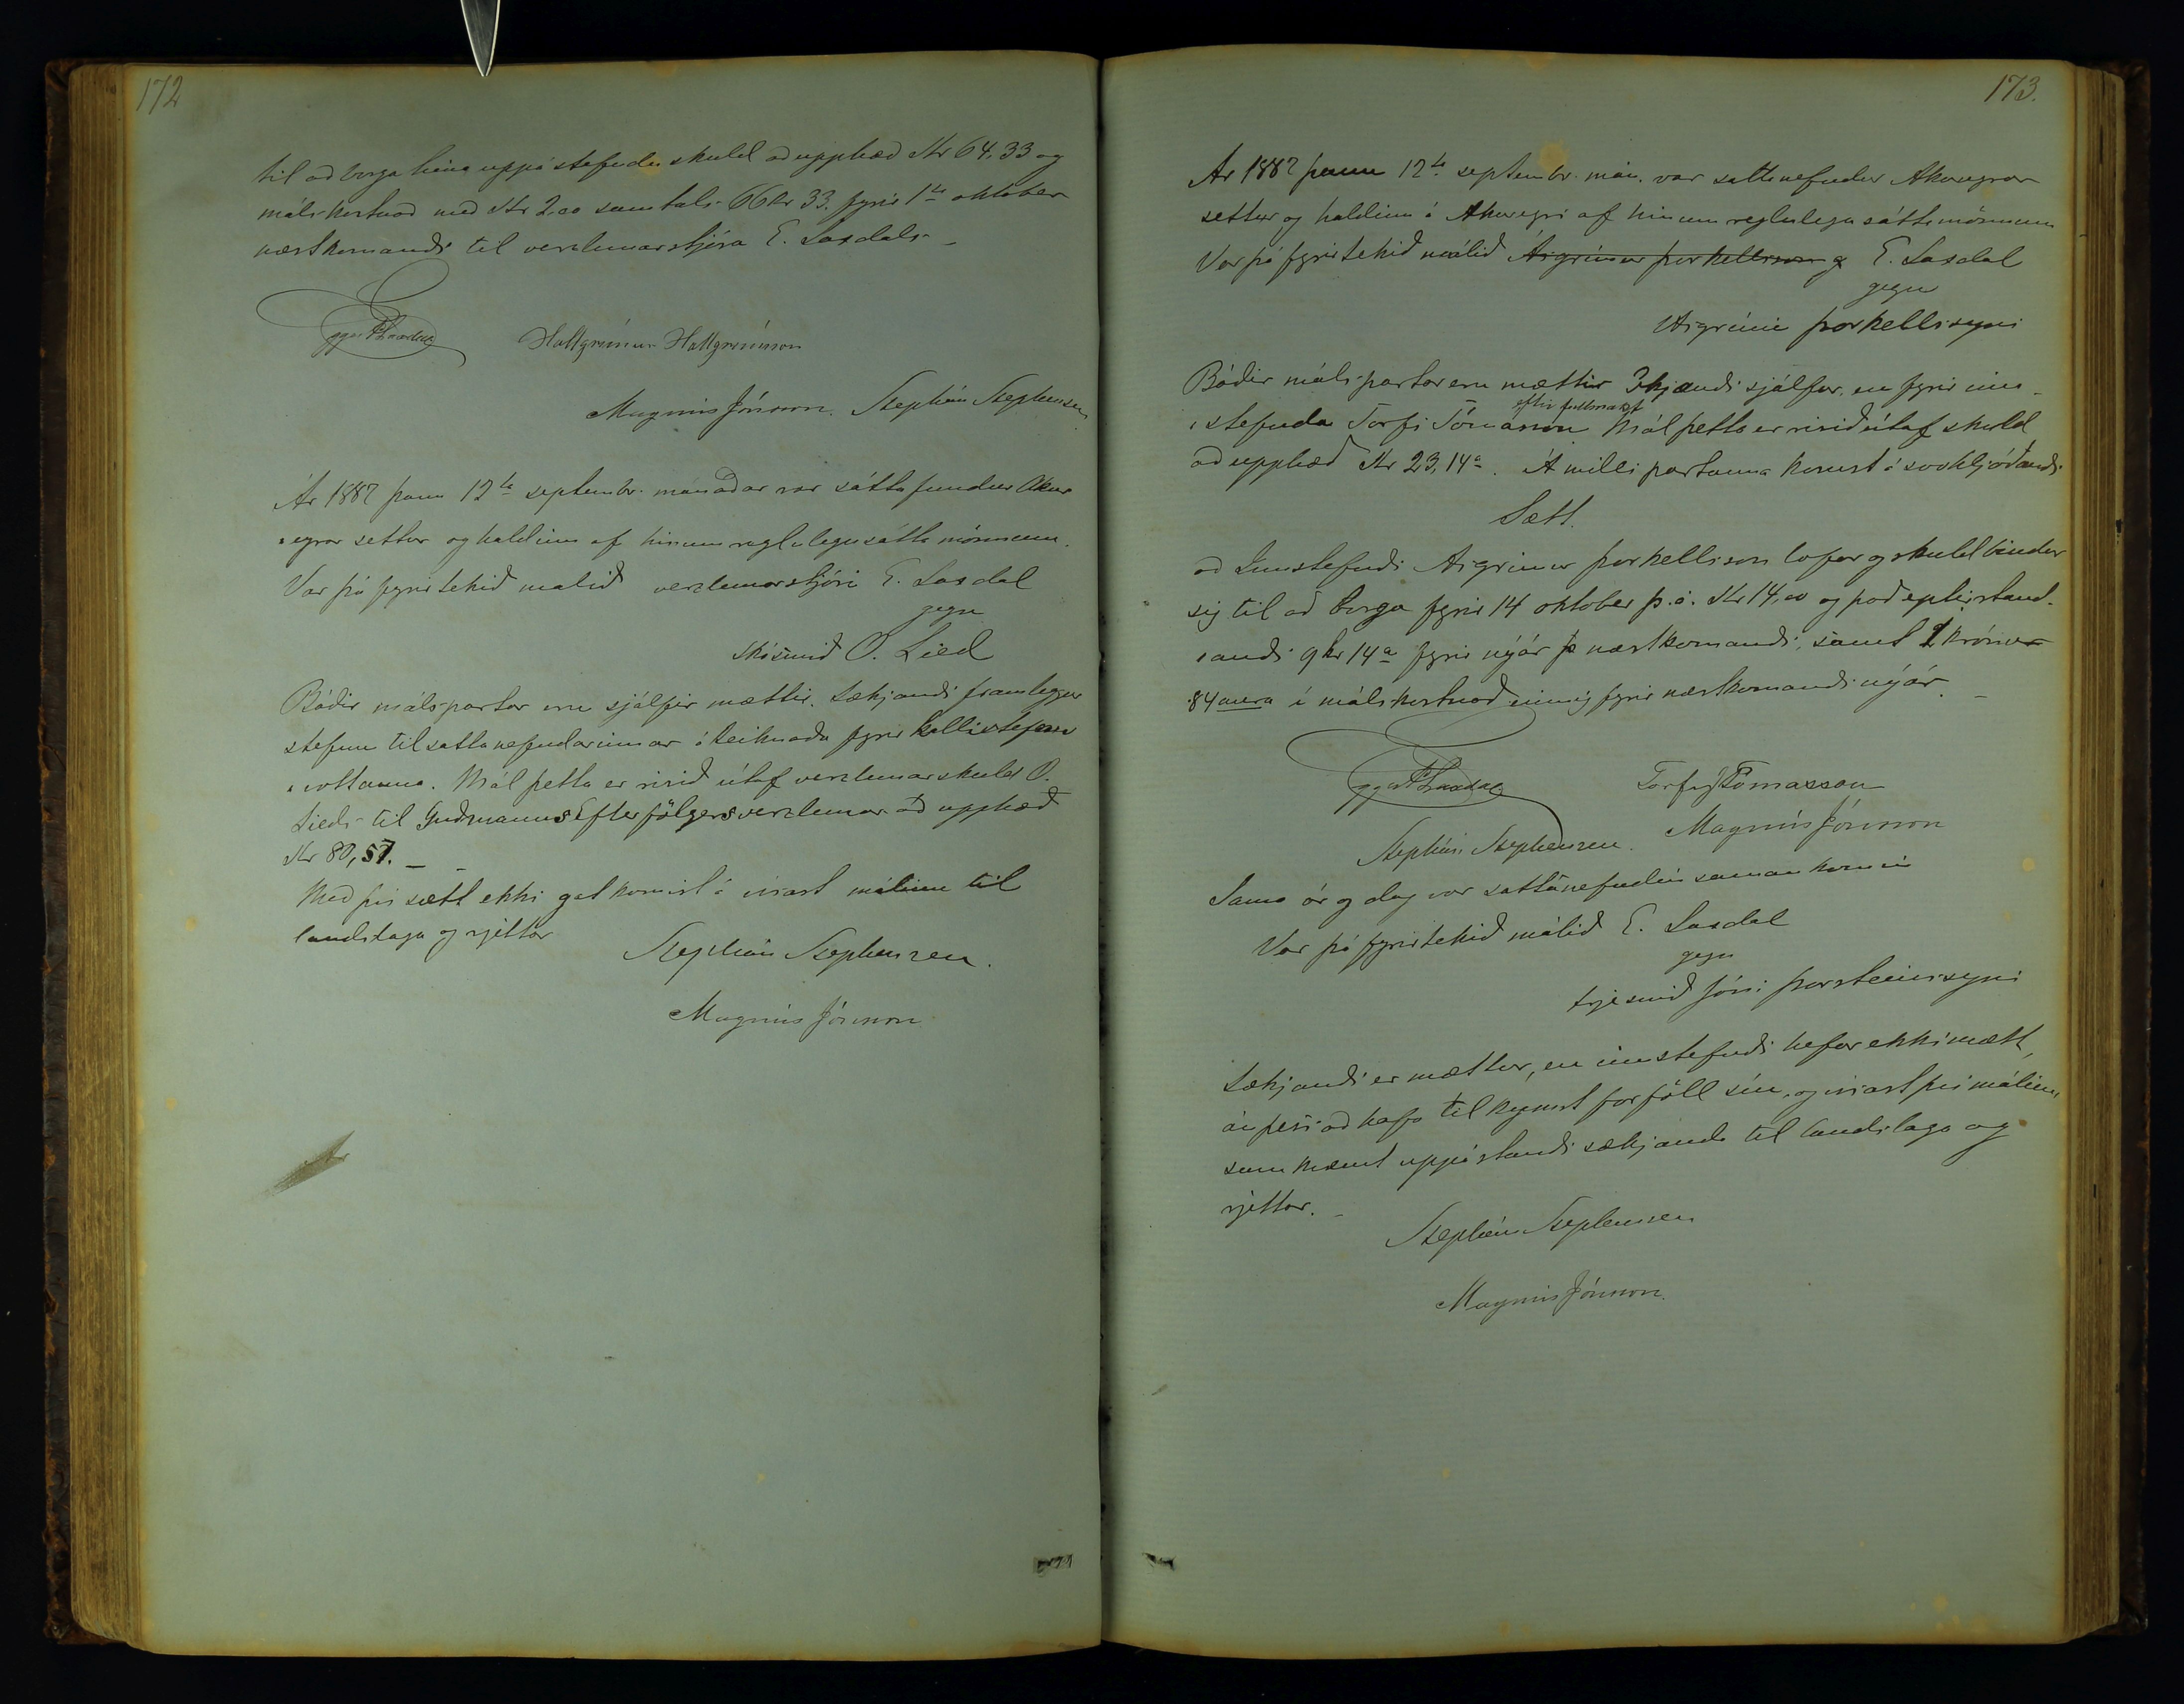 172
til að borga hina uppástefndu skuld að upphæð Kr 64,33 og
málskostnað með Kr 2,00 samtals 66 kr 33. fyrir 1ta oktober
næstkomandi til verzlunarstjóra E. Laxdals.
Eggert Laxdal Hallgrímur Hallgrímsson
Magnús Jónsson. Stephán Stephensen
Ár 1882 þann 12ta septembr. mánaðar var sáttafundur Akur
eyrar settur og haldinn af hinum reglulegu sátta mönnum.
Var þá fyrirtekið málið verzlunarstjóri E. Laxdal
gegn
skósmið O. Lied
Báðir málspartar eru sjálfir mættir. Sækjandi framleggur
stefnu til sáttanefndarinnar áteiknaða fyrir kallistefnu
vottanna. Mál þetta er risið útaf verzlunarskuld O.
Lieds til Guðmanns Efterfölgers verzlunar að upphæð
Kr 80,57.
Með því sætt ekki gat komist á vísast málinu til
landslaga og rjettar
Stephán Stephensen.
Magnús Jónsson
173.
Ár 1882 þann 12ta septembr. mán. var sáttanefndur Akureyrar
settur og haldinn á Akureyri af hinum reglulegu sáttamönnum
Var þá fyrirtekið málið Ásgrímur Þorkellsson g E. Laxdal
gegn
Ásgrími Þorkellssyni
Báðir málspartar eru mættir Sækjandi sjálfur, en fyrir inn
eftir fullmakt
stefnda Torfi Tómasson Mál þetta er risið útaf skuld
að upphæð Kr 23,14a. Á milli partanna komst á svohljóðandi
Sætt.
að Innstefndi Ásgrímur Þorkellsson lofar og skuldbindur
sig til að borga fyrir 14 oktober þ.á. Kr 14,00 og það eptirstand
andi 9 kr 14a fyrir nýár þ næstkomandi, samt 1 krónur
84 aura í málskostnað einnig fyrir næstkomandi nýár.
Eggert Laxdal Torfi Tómasson
Stephán Stephensen. Magnús Jónsson
Sama ár og dag var sáttanefndin saman komin
Var þá fyrirtekið málið E. Laxdal
gegn
trjesmið Jóni Þorsteinssyni
Sækjandi er mættur, en innstefndi hefur ekki mætt,
án þess að hafa tilkynnt forföll sín, og vísast því málinu
samkvæmt uppástandi sækjanda til landslaga og
rjettar.
Stephán Stephensen
Magnús Jónsson.